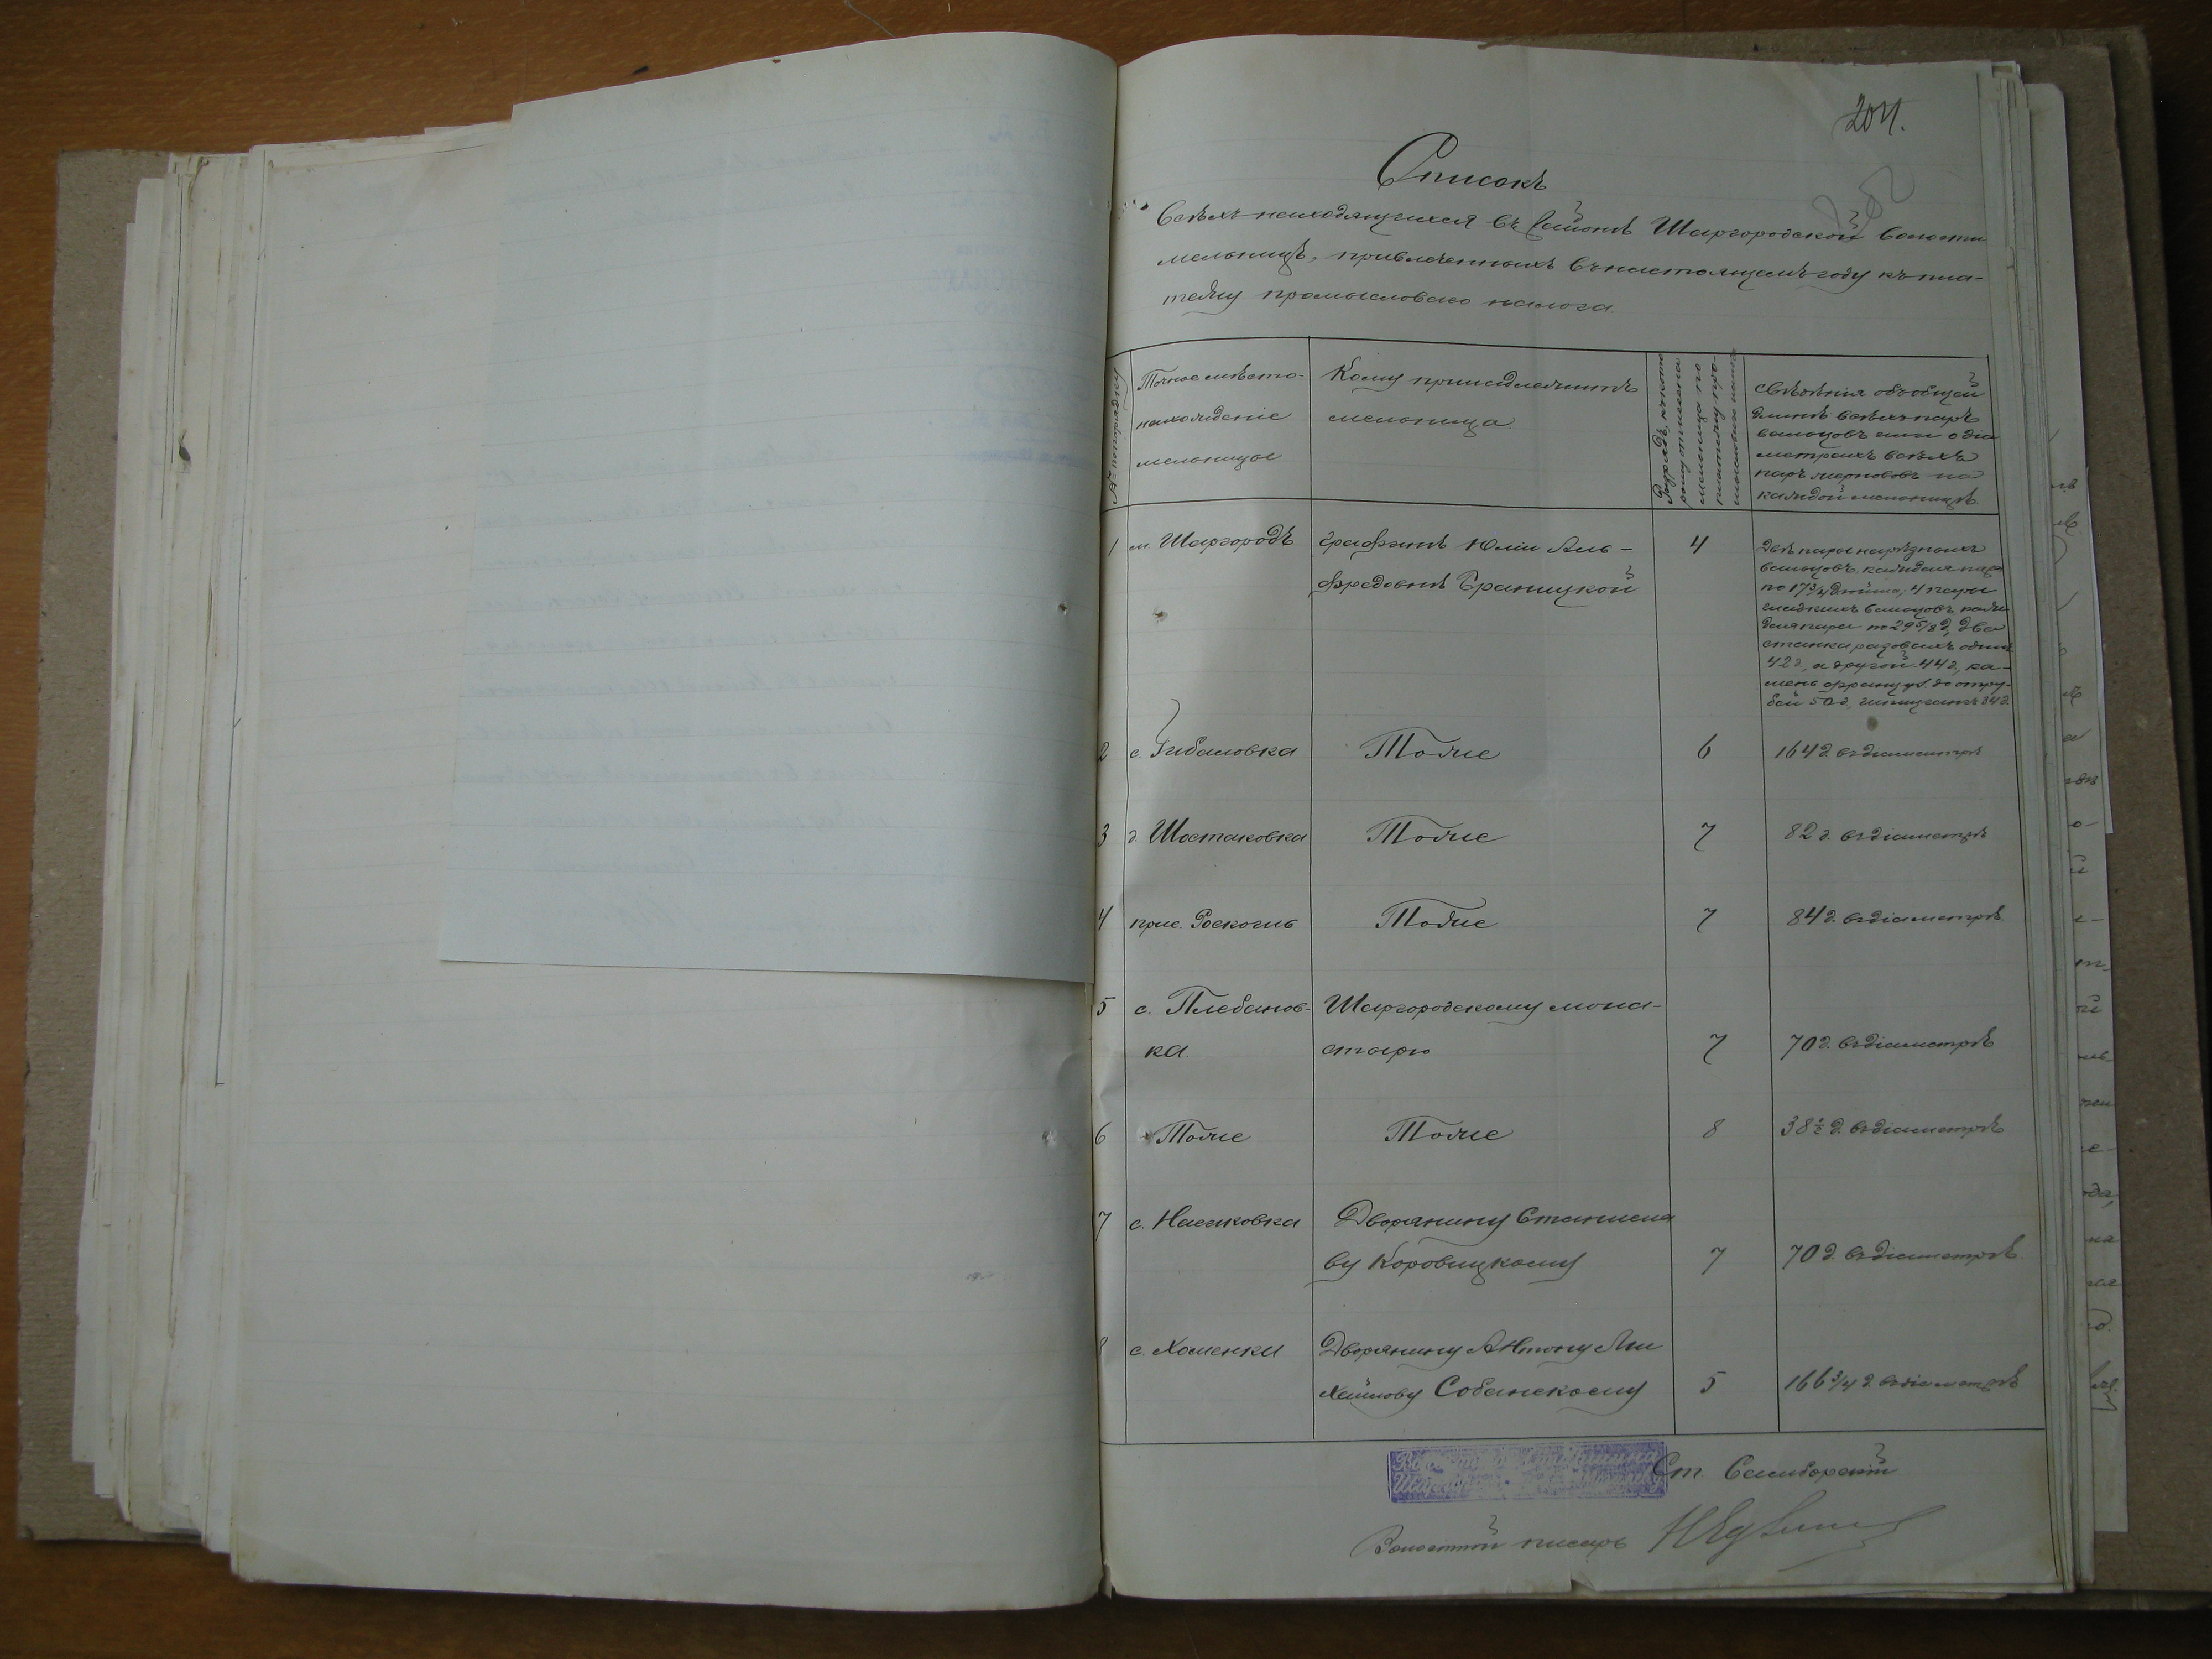 204.
Списокъ
всѣхъ находящихся въ районѣ Шаргородской волости
мельницъ, привлеченныхъ въ настоящемъ году къ пла-
тежу промысловаго налога.
№ по порядку
Точное мѣсто-
нахожденіе
мельницы
Кому принадлежитъ
мельница.
Разрядъ, къ кото
рому отнесена
мельница по
платежу про-
мысловаго налога
Свѣдѣнія объ общей
длинѣ всѣхъ паръ
вальцовъ или о діа
метрахъ всѣхъ
паръ жернововъ на
каждой мельницѣ
1 м. Шаргородъ Графинѣ Юліи Аль- 4
фредовнѣ Браницкой
Двѣ пары нарѣзныхъ
вальцовъ, каждая пара
по 17 3/4 дюйма, 4 пары
гладкихъ вальцовъ, каж-
дая пара по 29 5/8 д, два
станка разовыхъ одинъ
42 д, а другой 44 д, ка-
мень француз. до отру-
бей 50 д, 34 д.
2 с. Гибаловка Тоже 6 164 д. въ діаметрѣ
3 д. Шостаковка Тоже 7 82 д. въ діаметрѣ
4 прис. Роскошь Тоже 7 84 д. въ діаметрѣ
5 с. Плебанов- Шаргородскому мона-
ка стырю 7 70 д. въ діаметрѣ
6 Тоже Тоже 8 38 1/2 д. въ діаметрѣ
7 с. Насиковка Дворянину Станисла
ву Коровицкому 7 70 д. въ діаметрѣ
8 с. Хоменки Дворянину Антону Ми
хайлову Собанскому 5 166 3/4 д. въ діаметрѣ
Ст. Самборскій
Волостной писарь